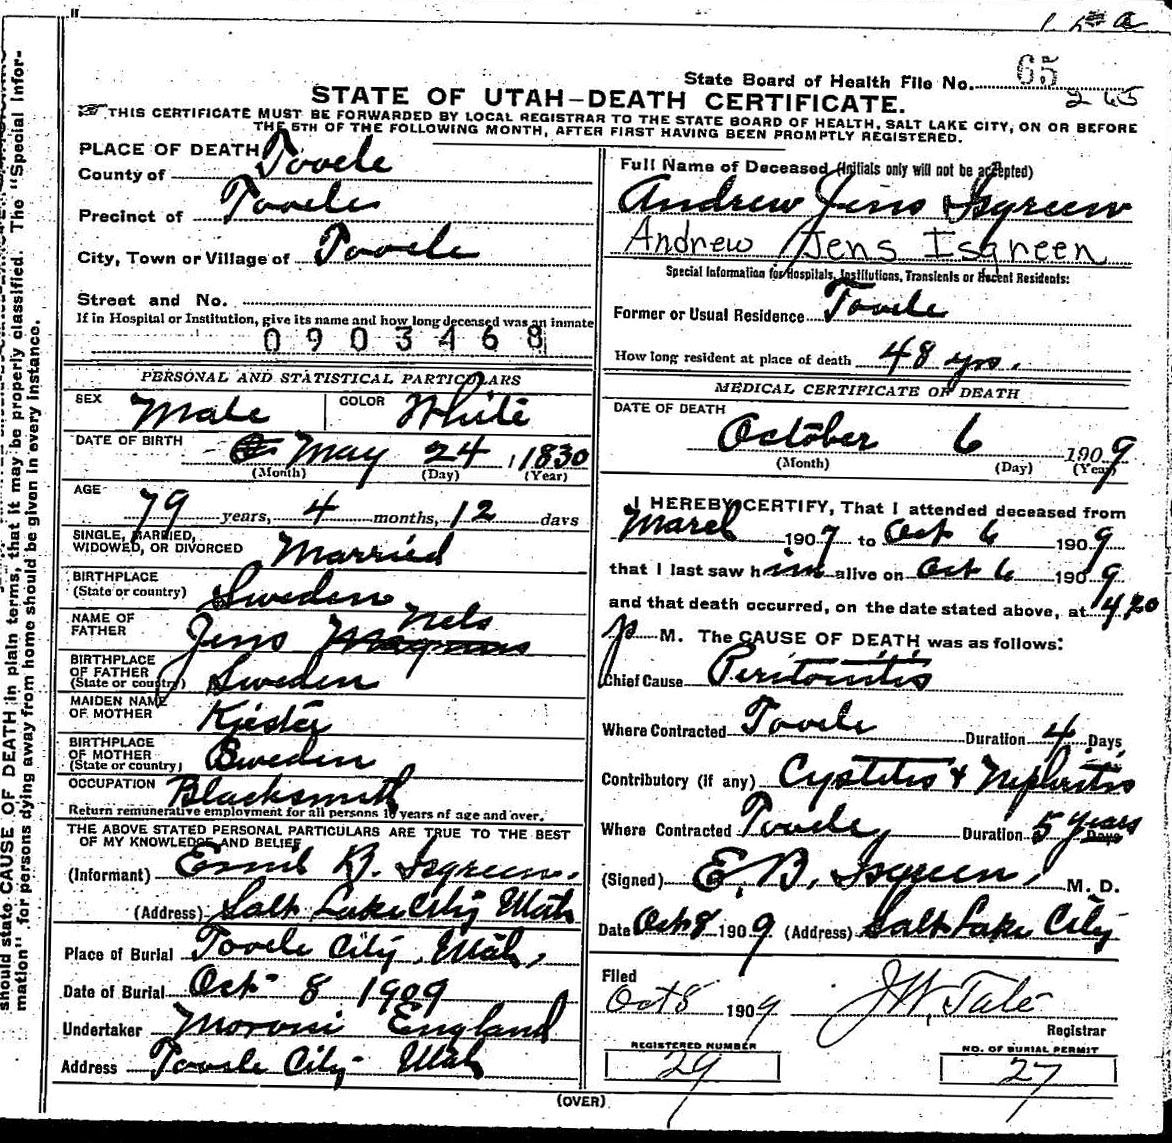 State Board of Health File No. 65
265
STATE OF UTAH—DEATH CERTIFICATE.
THIS CERTIFICATE MUST BE FORWARDED BY LOCAL REGISTRAR TO THE STATE BOARD OF HEALTH, SALT LAKE CITY, ON OR BEFORE
THE 5TH OF THE FOLLOWING MONTH, AFTER FIRST HAVING BEEN PROMPTLY REGISTERED.
should state CAUSE OF DEATH in plain terms, that it may be properly classified. The "Special Infor-
mation" for persons dying away from home should be given in every instance.
PLACE OF DEATH
County of Tooele
Precinct of Tooele
City, Town or Village of Tooele
Street and No.
If in Hospital or Institution, give its name and how long deceased was an inmate
0903468
PERSONAL AND STATISTICAL PARTICULARS
SEX Male COLOR White
DATE OF BIRTH May 24, 1830
(Month) (Day) (Year)
AGE 79 years, 4 months, 12 days
SINGLE, MARRIED,
WIDOWED, OR DIVORCED Married
BIRTHPLACE
(State or country) Sweden
NAME OF
FATHER Jens Nels Magnus
BIRTHPLACE
OF FATHER
(State or country) Sweden
MAIDEN NAME
OF MOTHER Kjester
BIRTHPLACE
OF MOTHER
(State or country) Sweden
OCCUPATION Blacksmith
Return remunerative employment for all persons 10 years of age and over.
THE ABOVE STATED PERSONAL PARTICULARS ARE TRUE TO THE BEST
OF MY KNOWLEDGE AND BELIEF
(Informant) Emil B. Isgreen.
(Address) Salt Lake City Utah
Place of Burial Tooele City, Utah,
Date of Burial Oct 8 1909
Undertaker England
Address Tooele City Utah
Full Name of Deceased (Initials only will not be accepted)
Andrew Jens Isgreen
Andrew Jens Isgreen
Special Information for Hospitals, Institutions, Transients or Recent Residents:
Former or Usual Residence Tooele
How long resident at place of death 48 yrs.
MEDICAL CERTIFICATE OF DEATH
DATE OF DEATH
October 6 1909
(Month) (Day) (Year)
I HEREBY CERTIFY, That I attended deceased from
March 1907 to Oct 6 1909
that I last saw him alive on Oct 6 1909
and that death occurred, on the date stated above, at 4 20
p M. The CAUSE OF DEATH was as follows:
Chief Cause Peritonitis
Where Contracted Tooele Duration 4 Days
Contributory (if any) Cystitis & Nephritis
Where Contracted Tooele Duration 5 years Days
(Signed) E. B. Isgreen, M. D.
Date Oct 8 1909 (Address) Salt Lake City
Filed
Oct 8 1909 J W. Tate
Registrar
REGISTERED NUMBER
29
NO. OF BURIAL PERMIT
27
(OVER)